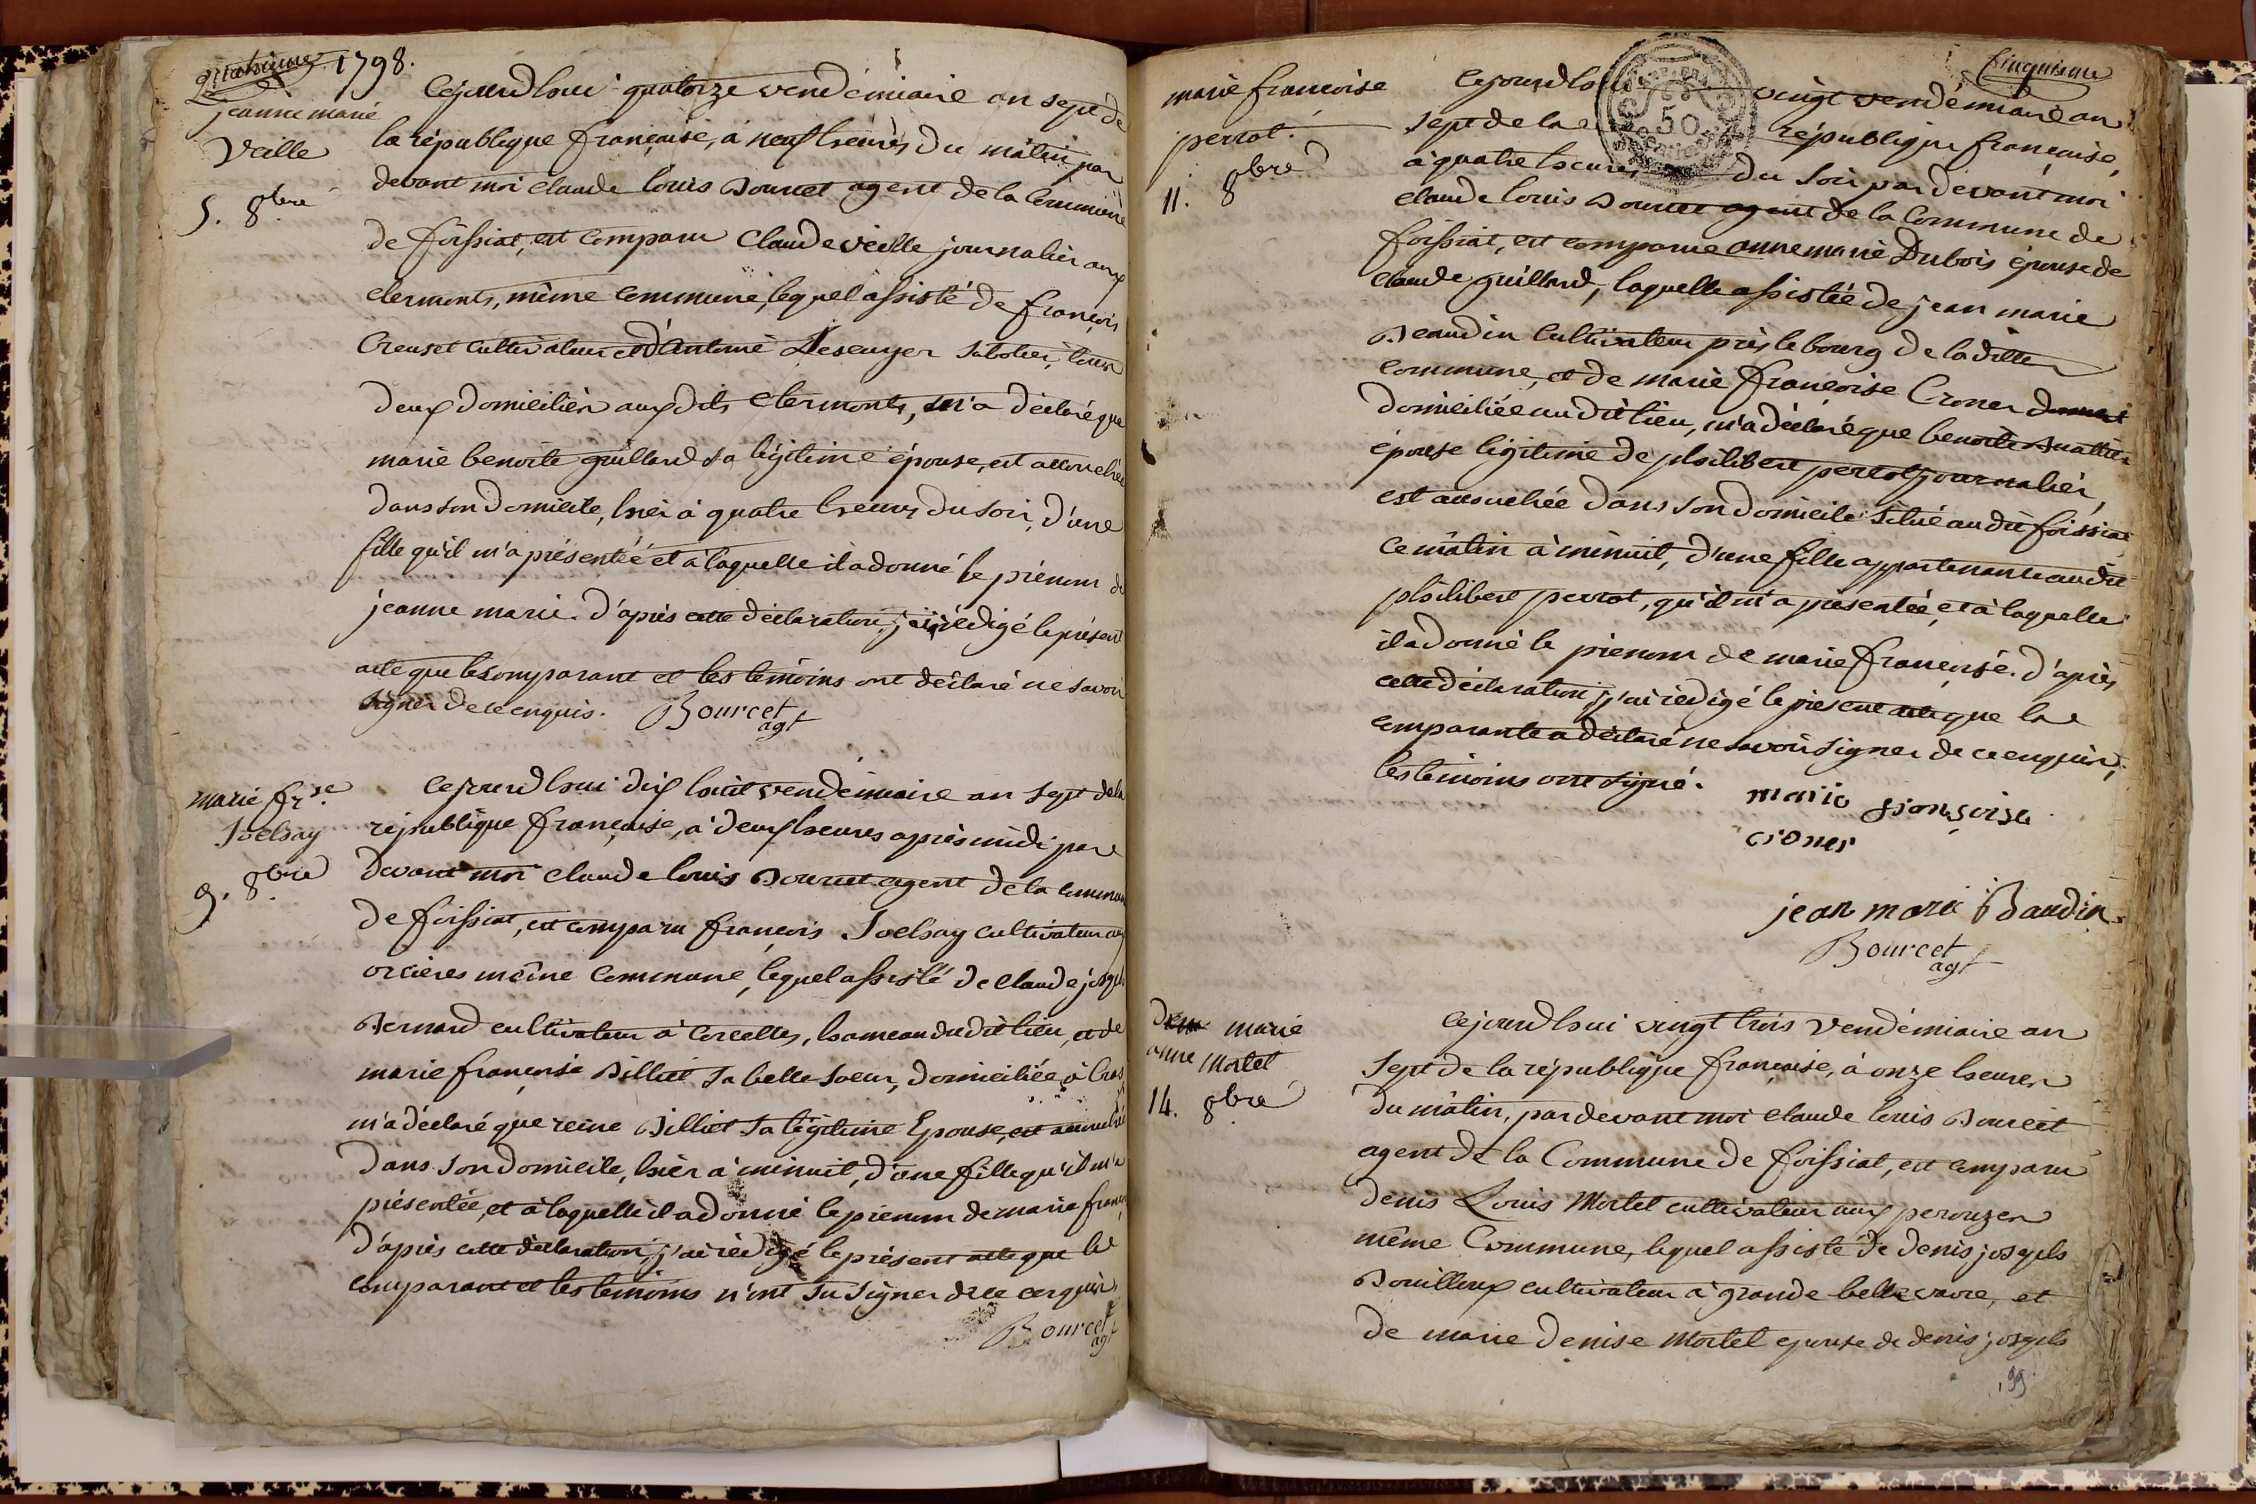 quatrieme 1798.
jeanne marie
Veille
5. 8bre
Cejourdhui quatorze vendémiaire an sept de
la république française, à neuf heures du mâtin par
devant moi claude louis Bourcet agent de la Commune
de foissiat, est comparu Claude veille journalier aux
clermonts, même commune, lequel assisté de françois
Creuset cultivateur et d'Antoine Lescuyer sabotier, tous
deux domiciliés aux dits clermonts, m'a déclaré que
marie benoite guillard sa légitime épouse, est accouchée
dans son domicile, hier à quatre heures du soir, d'une
fille qu'il m'a présentée et à laquelle il a donné le prénom de
jeanne marie. d'après cette déclaration, j'ai rédigé le présent
acte que le comparant et les témoins ont déclaré ne savoir
signer de ce enquis. Bourcet
agt
marie frse
Joelsay
9. 8bre
Cejourdhui dix huit vendémiaire an sept de la
république française, à deux heures après midi par
devant moi claude louis Bourcet agent de la commune
de foissiat, est comparu françois Joelsay cultivateur aux
orcières même commune, lequel assisté de claude joseph
Bernard cultivateur à Corcelles, hameau du dit lieu, et de
marie françoise Billiet sa belle soeur, domiciliée à Cras
m'a déclaré que reine Billiet sa légitime Epouse, est accouchée
dans son domicile, hier à minuit, d'une fille qu'il m'a
présentée, et à laquelle il a donné le prénom de marie franç
d'après cette déclaration, j'ai rédigé le présent acte que le
comparant et les témoins n'ont su signer de ce enquis
Bourcet
agt
Cinquieme
50
marie françoise
perrot.
11. 8bre
Cejourdhui vingt vendémiaire an
sept de la république française,
à quatre heures du soir par devant moi
claude louis Bourcet agent de la Commune de
foissiat, est comparue anne marie Dubois épouse de
claude guillard, laquelle assistée de jean marie
Beaudin cultivateur près le bourg de la ditte
commune, et de marie françoise Croner
domiciliée au dit lieu, m'a déclaré que benoite
épouse légitime de philibert perrot journalier,
est accouchée dans son domicile situé au dit foissiat
ce mâtin à minuit, d'une fille appartenante au dit
philibert perrot, qu'il m'a présentée, et à laquelle
il a donné le prénom de marie françoise. d'après
cette déclaration, j'ai rédigé le présent acte que la
comparante a déclaré ne savoir signer de ce enquise,
les témoins ont signé. marie fransoise
croner
jean marie Baudin
Bourcet
agt
marie
anne Mortel
14. 8bre
Cejourdhui vingt trois vendémiaire an
sept de la république française, à onze heures
du mâtin, par devant moi claude louis Bourcet
agent de la Commune de foissiat, est comparu
denis Louis Mortel cultivateur aux perouzes
même Commune, lequel assisté de denis joseph
Bouilloux cultivateur à grande belle vavre, et
de marie denise Mortel epouse de denis joseph
99